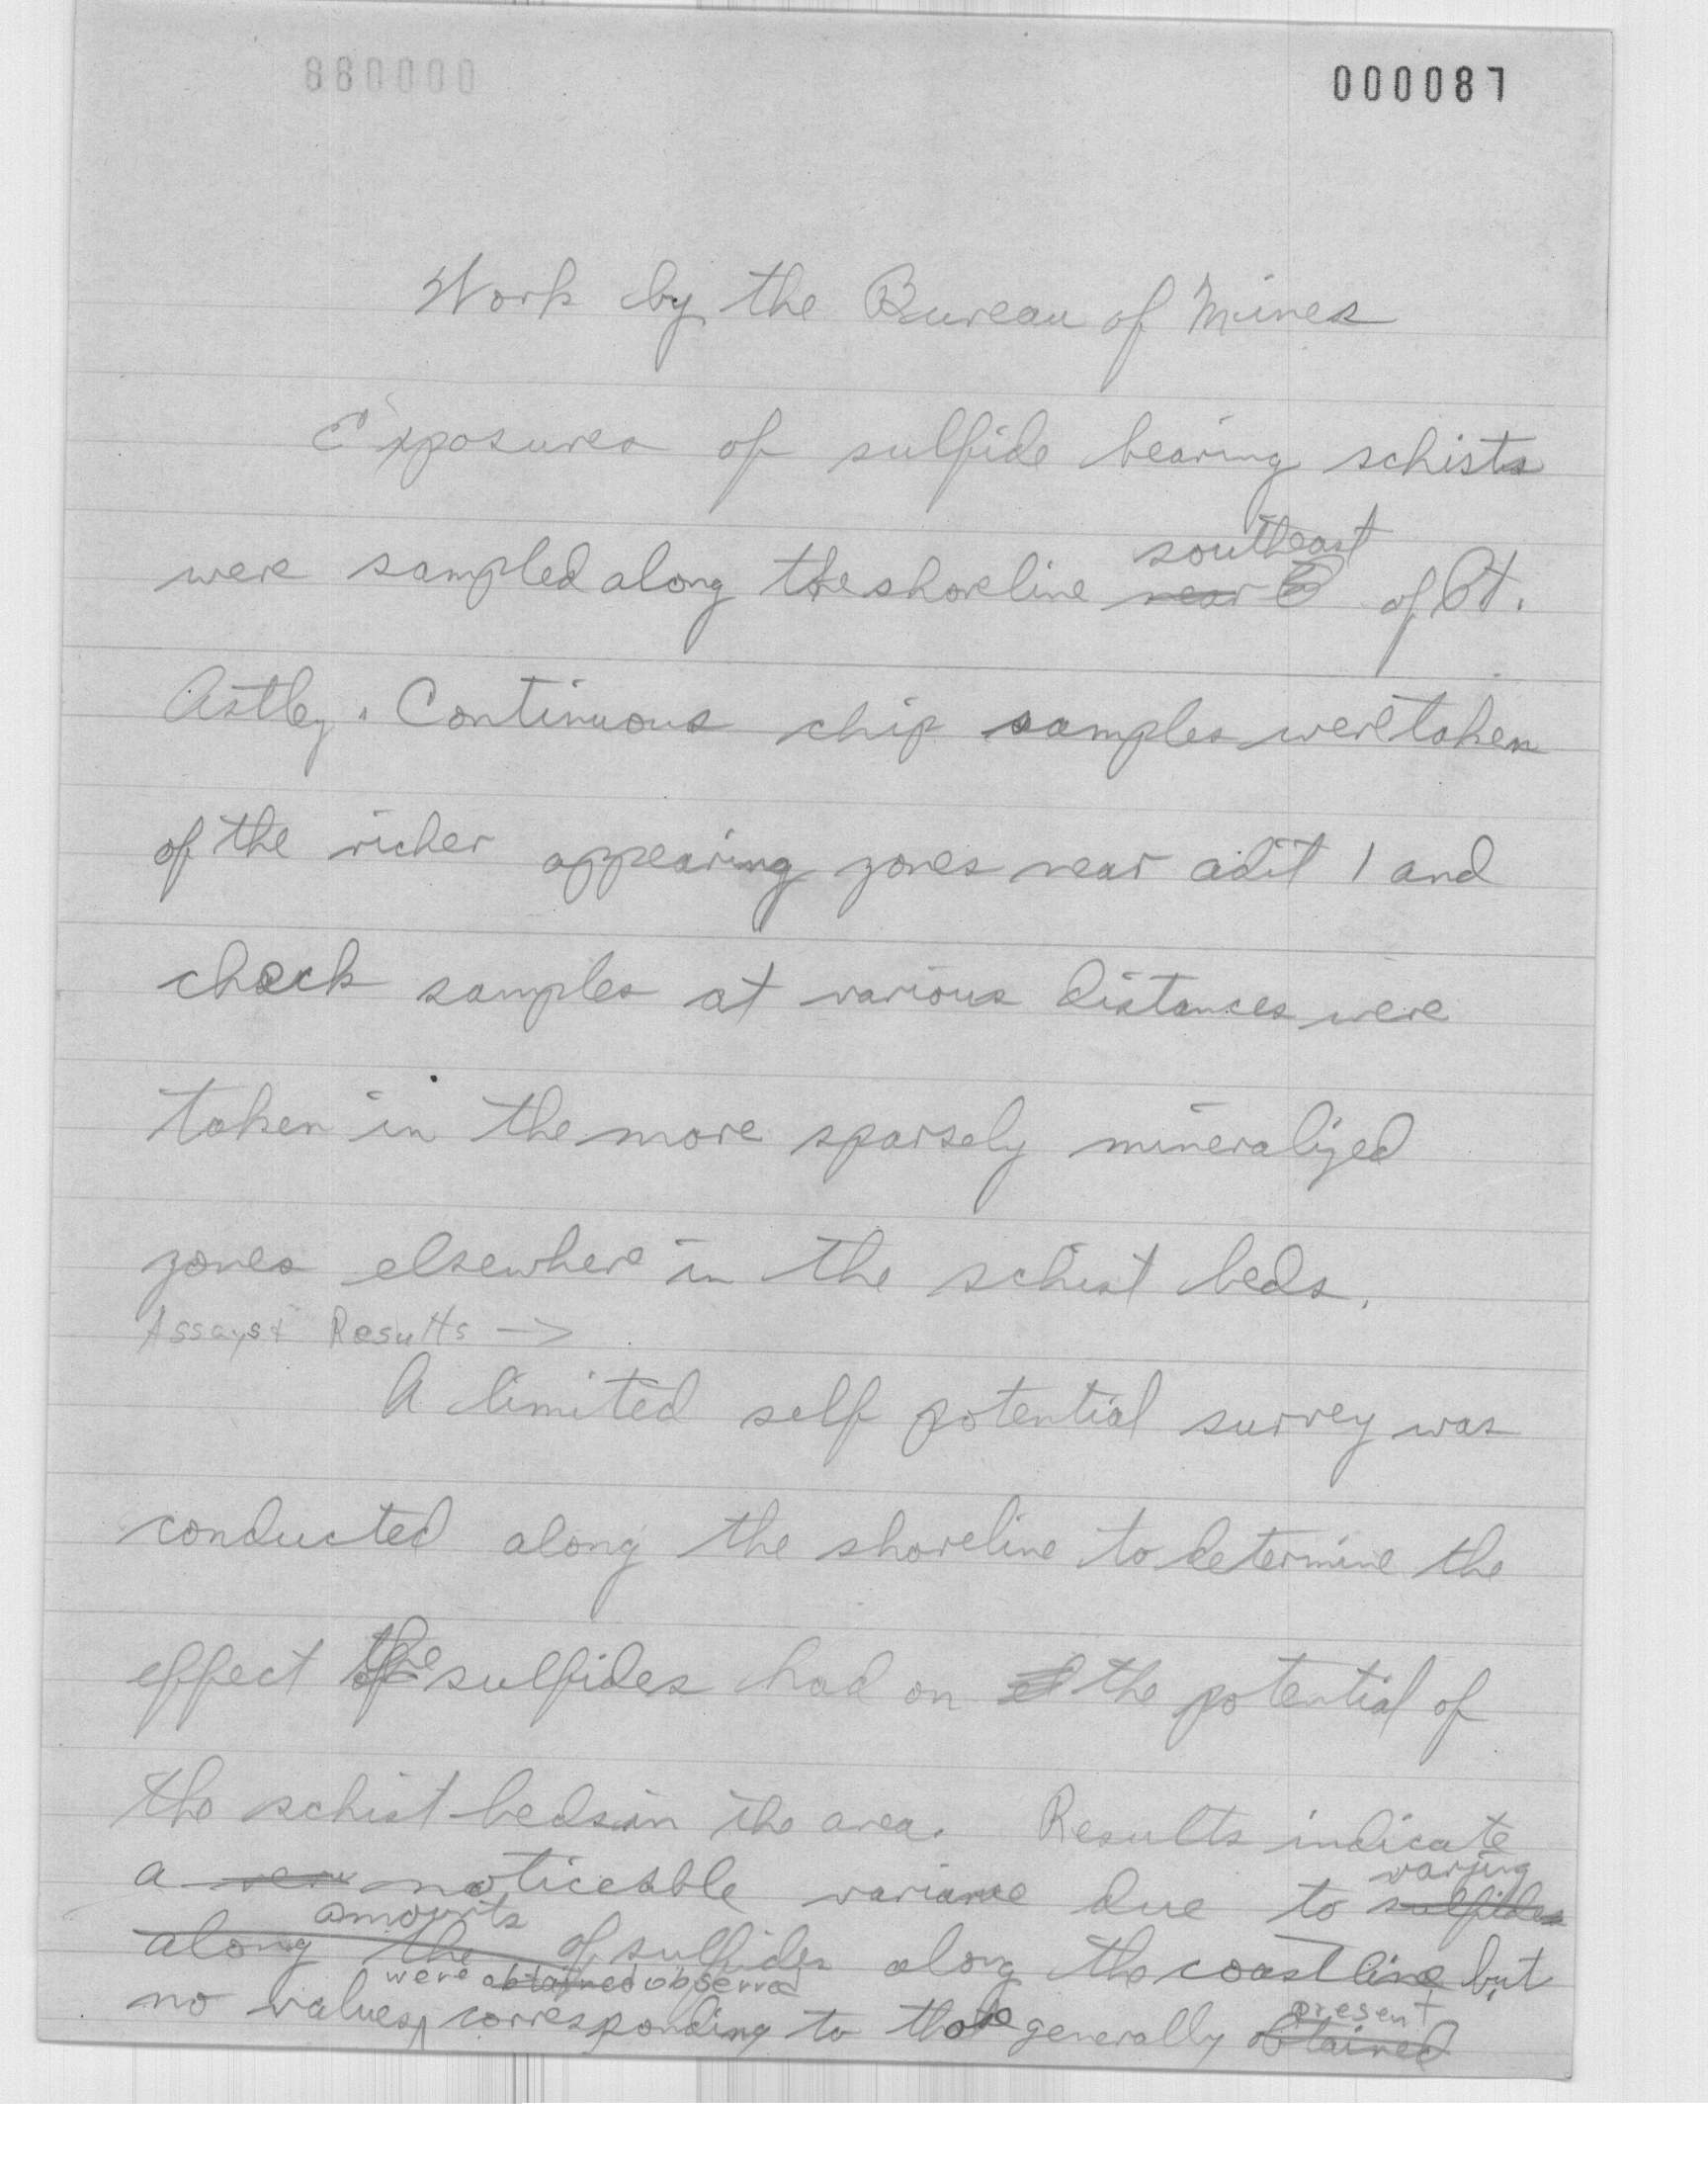 880000
000087
Work by the Bureau of Mines
Exposures of sulfide bearing schists
southeast
were sampled along the shoreline near of Pt.
Astley. Continuous chip samples were taken
of the richer appearing zones near adit 1 and
check samples at various distances were
taken in the more sparsely mineralized
zones elsewhere in the schist beds.
Assays & Results ->
A limited self potential survey was
conducted along the shoreline to determine the
effect the sulfides had on the potential of
the schist beds in the area. Results indicate
varying
a noticeable variance due to sulfides
amounts
along the of sulfides along the coast line but
were obtained observed
present
no values corresponding to those generally obtained